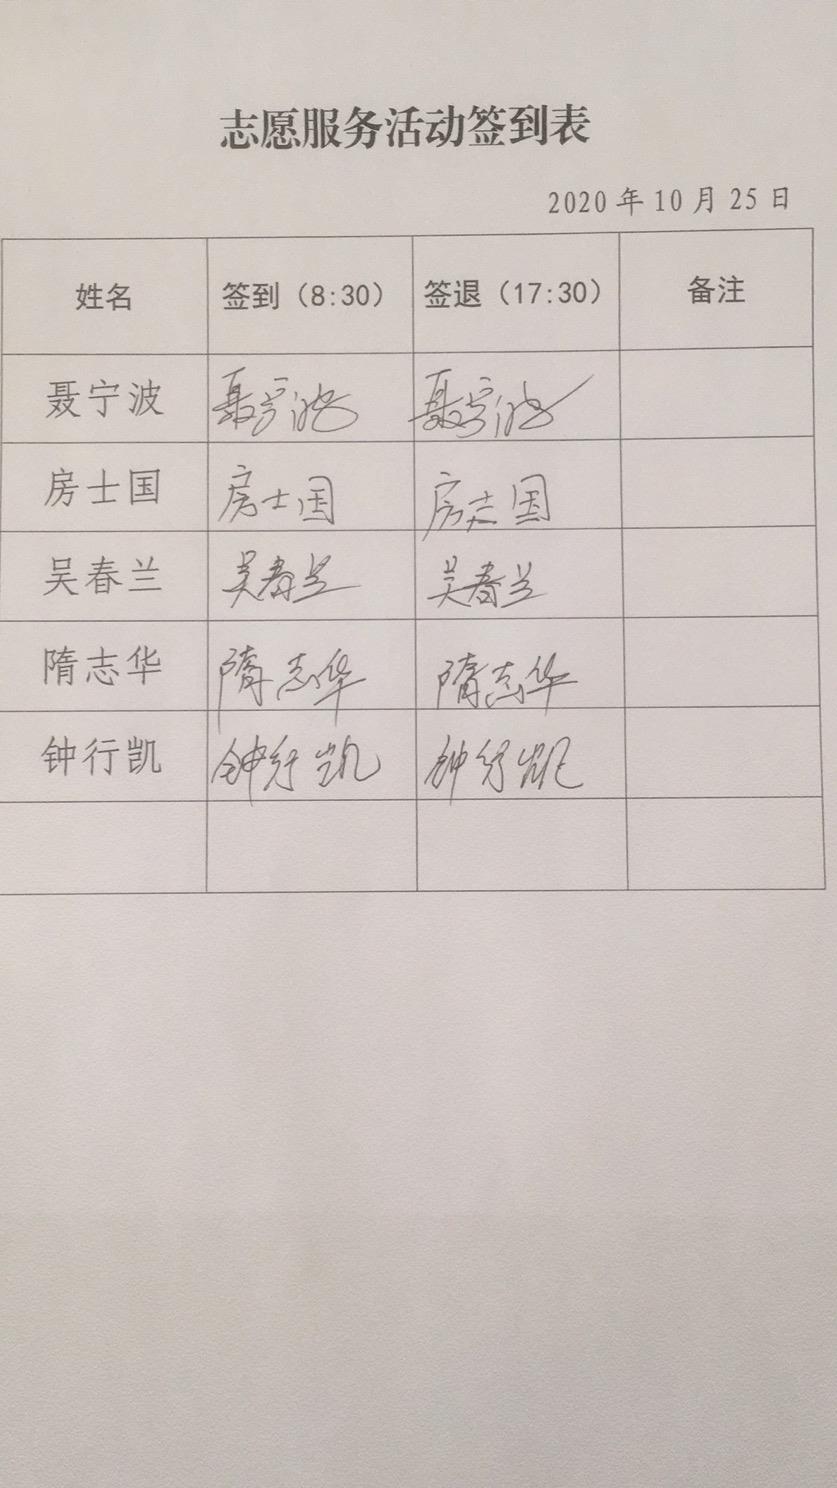 志愿服务活动签到表
2020年10月25日
姓名 签到（8:30） 签退（17:30） 备注
聂宁波 聂宁波 聂宁波
房士国 房士国 房士国
吴春兰 吴春兰 吴春兰
隋志华 隋志华 隋志华
钟行凯 钟行凯 钟行凯